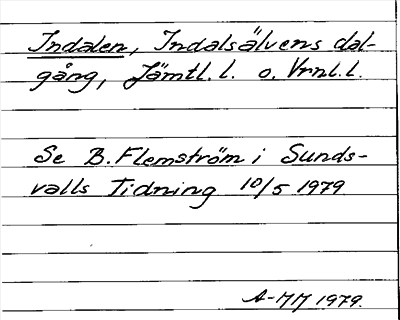 Indalen, Indalsälvens dal-
gång, Jämtl. l. o. Vrnl. l.
Se B. Flemström i Sunds-
valls Tidning 10/5 1979
A-MM 1979.